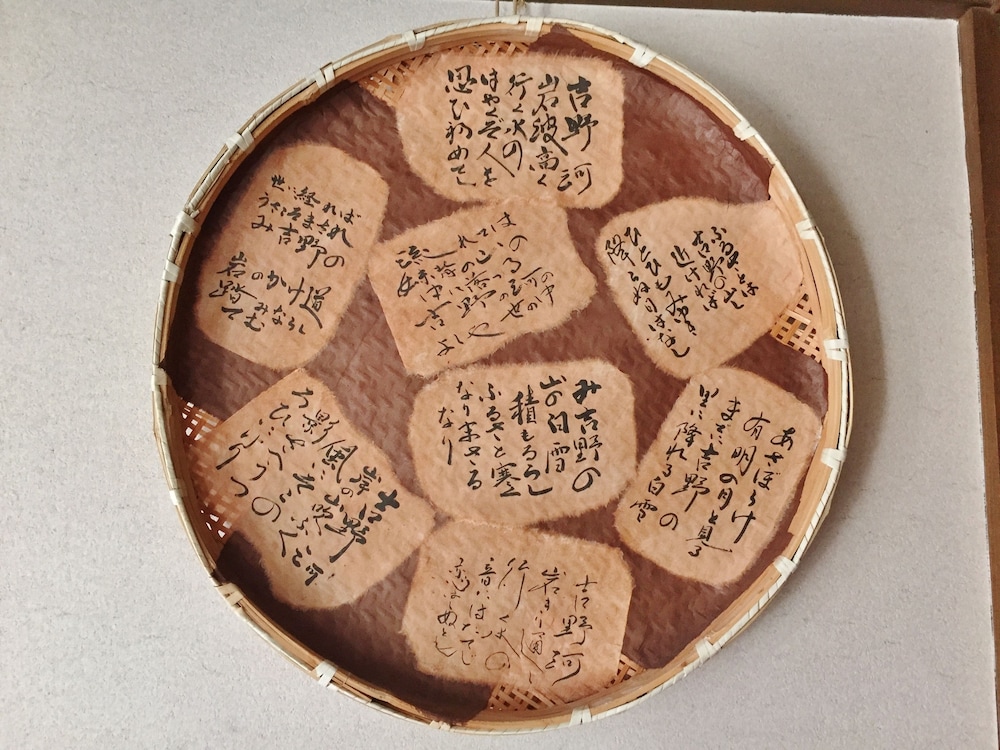 吉野河
岩波高く
行く水の
はやくぞ人を
思ひ初めてし
ふるさとは
吉野の山し
近ければ
ひとひもみ雪
降らぬ日はなし
流れては
妹背の山の
中に落つる
吉野の河の
よしや世の中
世に経れば
うさこそまされ
み吉野の
岩のかけ道
踏みならしてむ
み吉野の
山の白雪
積もるらし
ふるさと寒く
なりまさる
なり
あさぼらけ
有明の月と見る
までに吉野の
里に降れる白雪
吉野河
岸の山吹
ふく風に
そこの影さへ
うつろひにけり
吉野河
岩きり通し
行く水の
音にはたてじ
恋は死ぬとも